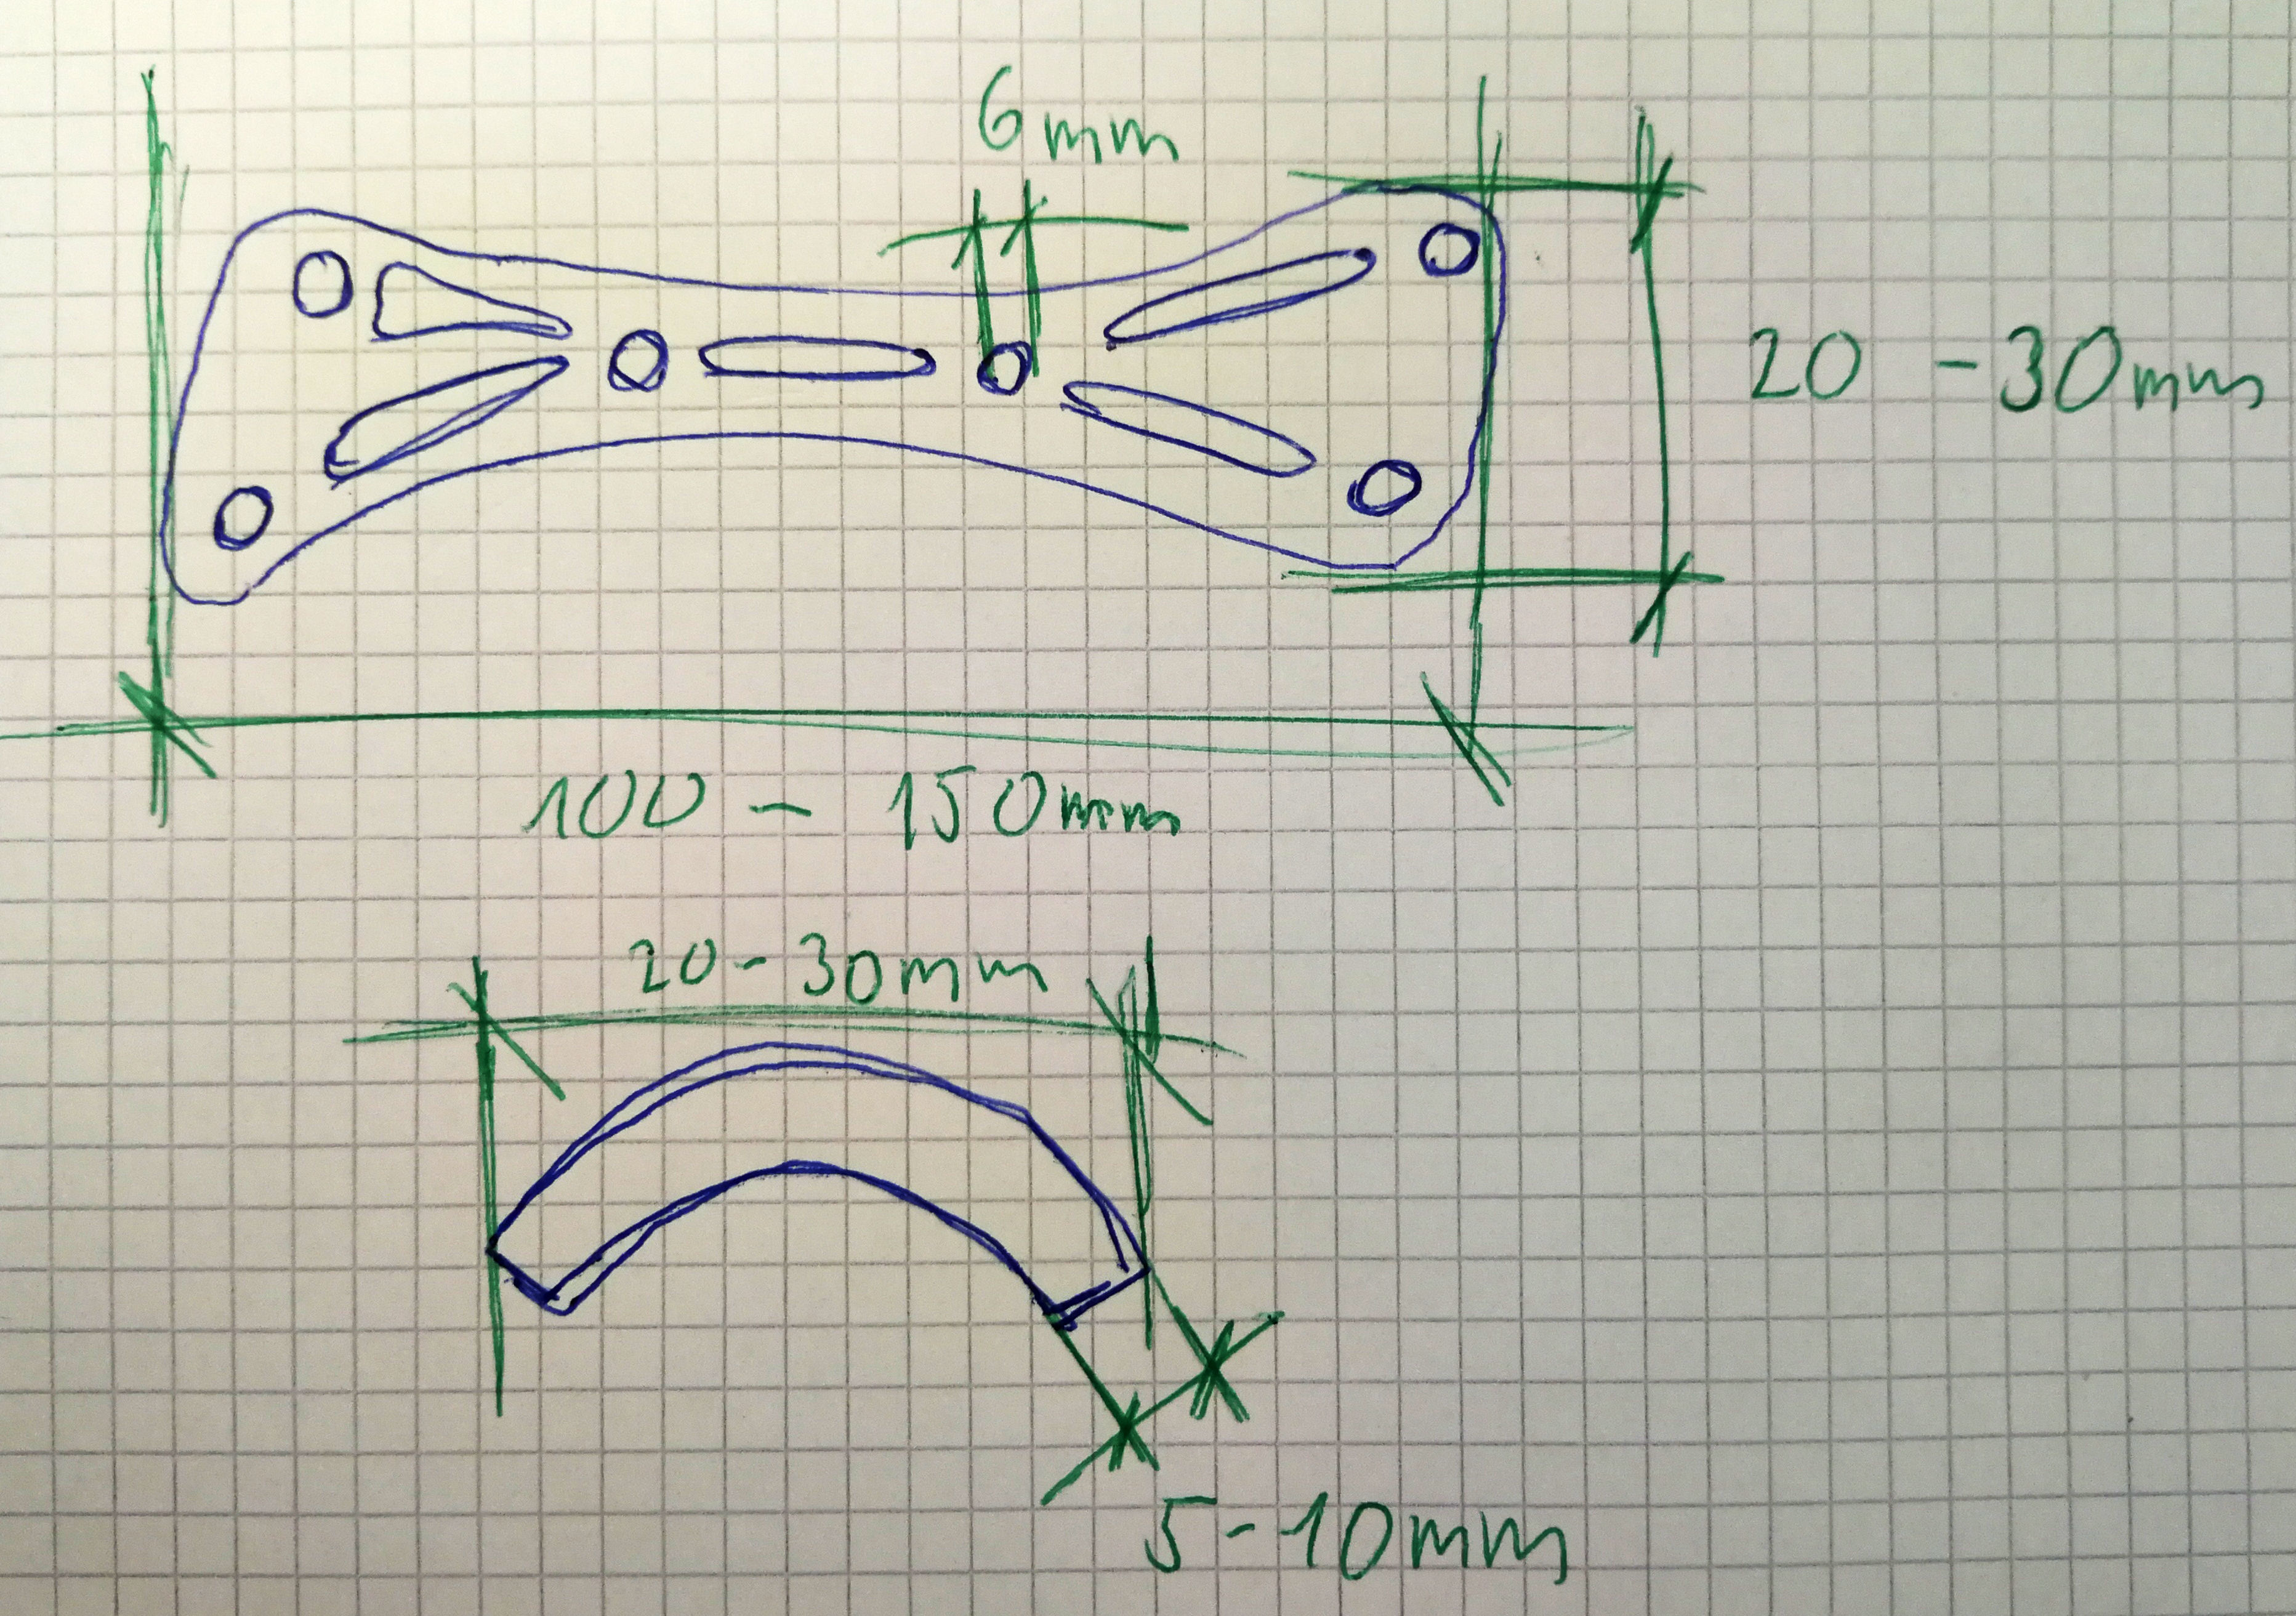 6mm
20 - 30mm
100 - 150mm
20-30mm
5-10mm